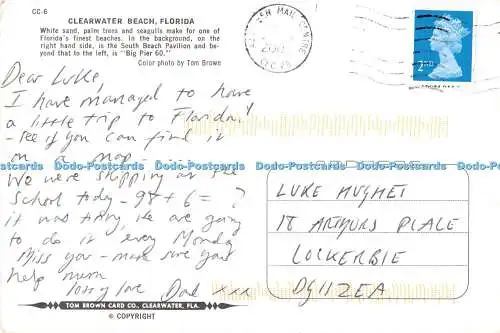 CC-6
CLEARWATER BEACH, FLORIDA
White sand, palm trees and seagulls make for one of
Florida's finest beaches. In the background, on the
right hand side, is the South Beach Pavilion and be-
yond that to the left, is "Big Pier 60."
Color photo by Tom Brown
MAIL CENTRE
2ND
Dear Luke,
I have managed to have
a little trip to Florida!
- see if you can find it
on a map - . . . .
Dodo-Postcards Dodo-Postcards Dodo-Postcards Dodo-Postcards Dodo-Postcards Dodo-Postcards
We were skipping at the
school today - 98 + 6 = ?
it was tiring, we are going
to do it every Monday
Miss you - make sure you
help mum
lots of love Dad xxx
LUKE
18 ARTHURS PLACE
LOCKERBIE
DG11 2EA
TOM BROWN CARD CO., CLEARWATER, FLA.
© COPYRIGHT